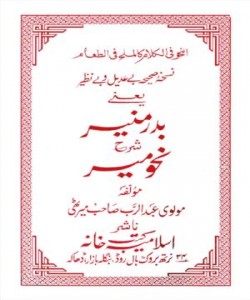 النحو فی الکلام کالملح فی الطعام
نسخۂ صحیحہ بے عدیل و بے نظیر
یعنی
بدر منیر
شرح
نحو میر
مؤلفہ
مولوی عبد الرب صاحب میرٹھی
ناشر
اسلامیہ کتب خانہ
نرتھ بروک ہال روڈ، بنگلہ بازار، ڈھاکہ